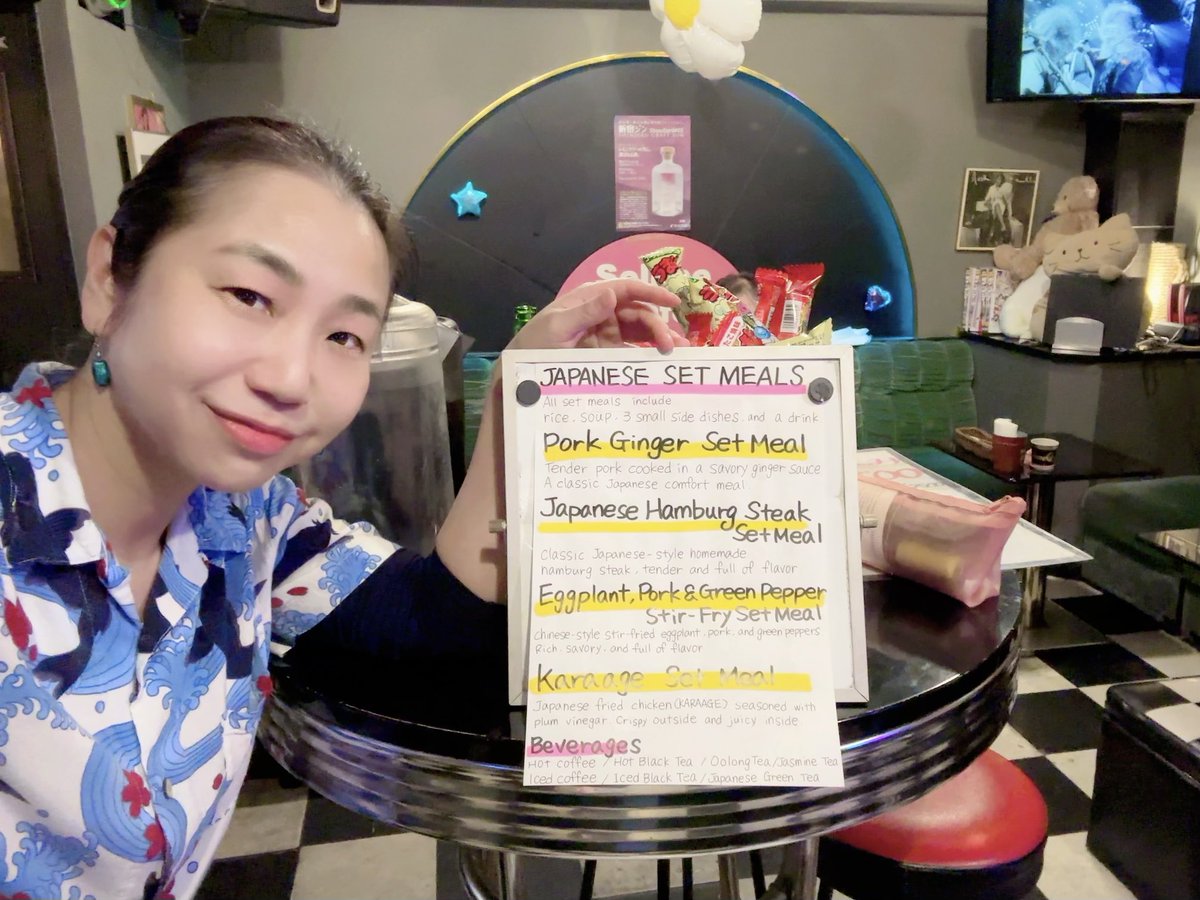 新宿ジン
JAPANESE SET MEALS
All set meals include
rice. soup. 3 small side dishes. and a drink
Pork Ginger Set Meal
Tender pork cooked in a savory ginger sauce
A classic Japanese comfort meal.
Japanese Hamburg Steak
Set Meal
Classic Japanese-style homemade
hamburg steak, tender and full of flavor
Eggplant, Pork & Green Pepper
Stir-Fry Set Meal
Chinese-style stir-fried eggplant. pork. and green peppers
Rich. savory. and full of flavor
Karaage Set Meal
Japanese fried chicken (KARAAGE) seasoned with
plum vinegar. Crispy outside and juicy inside.
Beverages
Hot coffee / Hot Black Tea / Oolong Tea / Jasmine Tea
Iced coffee / Iced Black Tea / Japanese Green Tea